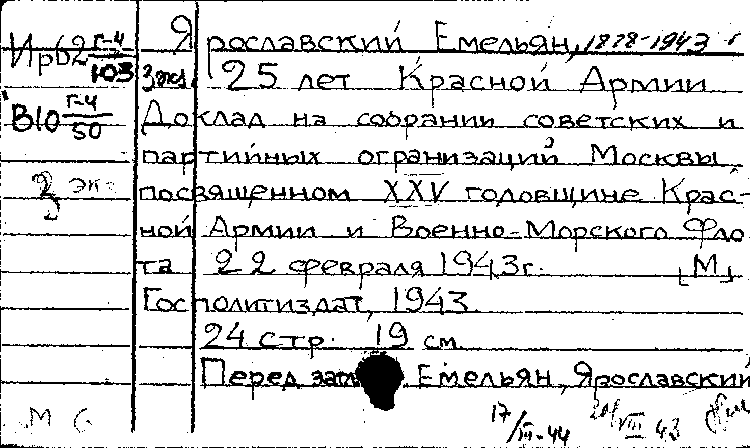 Ярославский Емельян, 1878-1943 г
Ирб2 г-4/103
3 экз. 25 лет Красной Армии
В10 г-4/50
Доклад на собрании советских и
партийных огранизаций Москвы,
3 эк=
посвященном XXV годовщине Крас-
ной Армии и Военно-Морского Фло
та 22 февраля 1943г. [М]
Госполитиздат, 1943.
24 стр. 19 см.
Перед Емельян, Ярославский
М
17/III-44 VIII 43